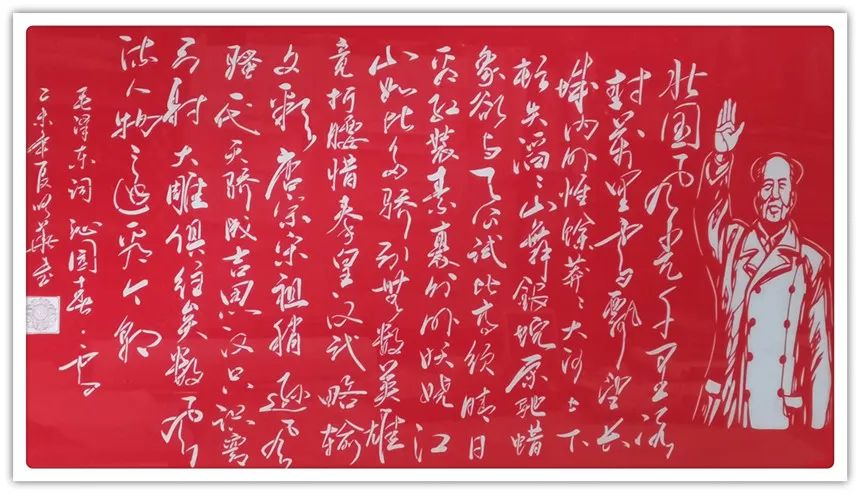 北国风光千里冰
封萬里雪飘望长
城内外惟馀莽々大河上下
顿失滔々山舞銀蛇原驰蜡
象欲与天公试比高须晴日
看红装素裹分外妖娆江
山如此多骄引無数英雄
竞折腰惜秦皇汉武略输
文彩唐宗宋祖稍逊风
骚一代天骄成吉思汗只识弯
弓射大雕俱往矣数风
流人物还看今朝
毛泽东词 沁园春·雪
乙未年夏